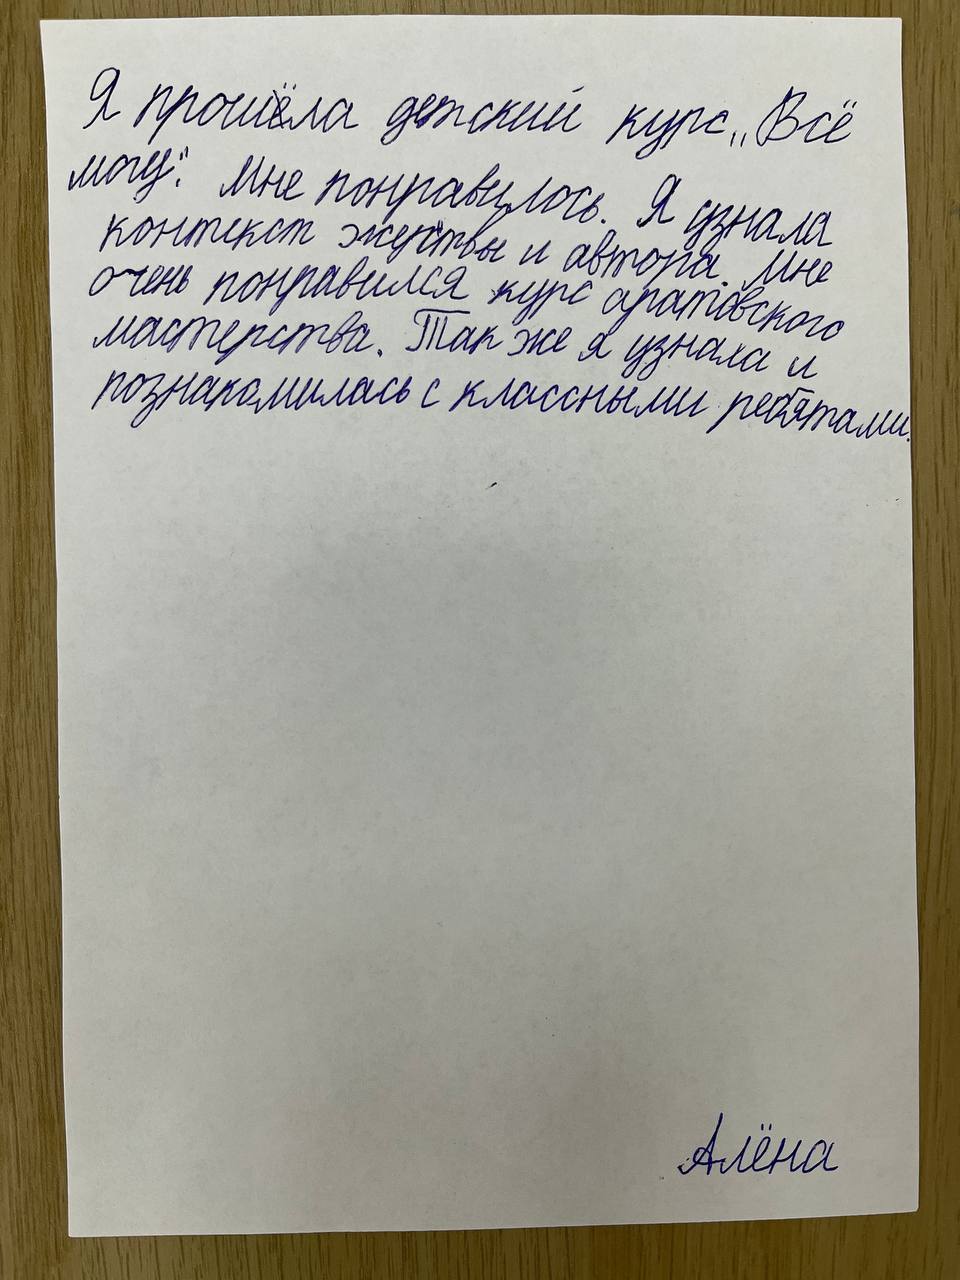 Я прошёла детский курс „Всё
могу". Мне понравилось. Я узнала
контекст жертвы и автора. Мне
очень понравился курс аратовского
мастерства. Так же я узнала и
познакомилась с классными ребятами.
Алёна